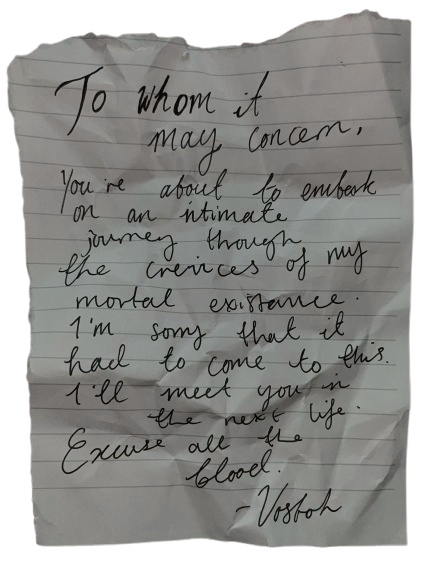 To whom it
may concern,
You're about to embark
on an intimate
journey through
the crevices of my
mortal existance.
I'm sorry that it
had to come to this.
I'll meet you in
the next life.
Excuse all the
blood.
- Vosboh